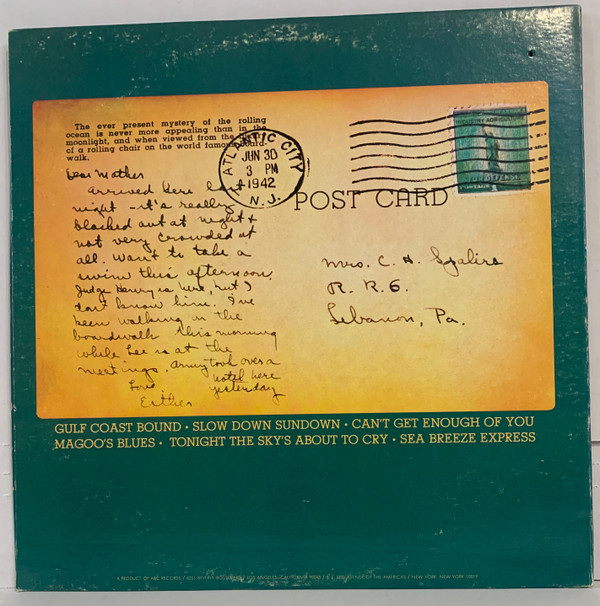 The ever present mystery of the rolling
ocean is never more appealing than in the
moonlight, and when viewed from the
of a rolling chair on the world famous board-
walk.
ATLANTIC CITY
JUN 30
3 PM
1942
N.J.
FOR DEFENSE
POST CARD
Dear Mother
arrived here last
night - it's really
blacked out at night &
not very crowded at
all. Want to take a
swim this afternoon.
Judge Henry is here, but I
don't know him. I've
been walking on the
boardwalk this morning
while Lee is at the
meetings. Army took over a
hotel here
yesterday
Love
Esther
Mrs. C. H.
R. R. 6.
Lebanon, Pa.
GULF COAST BOUND • SLOW DOWN SUNDOWN • CAN'T GET ENOUGH OF YOU
MAGOO'S BLUES • TONIGHT THE SKY'S ABOUT TO CRY • SEA BREEZE EXPRESS
A PRODUCT OF ABC RECORDS